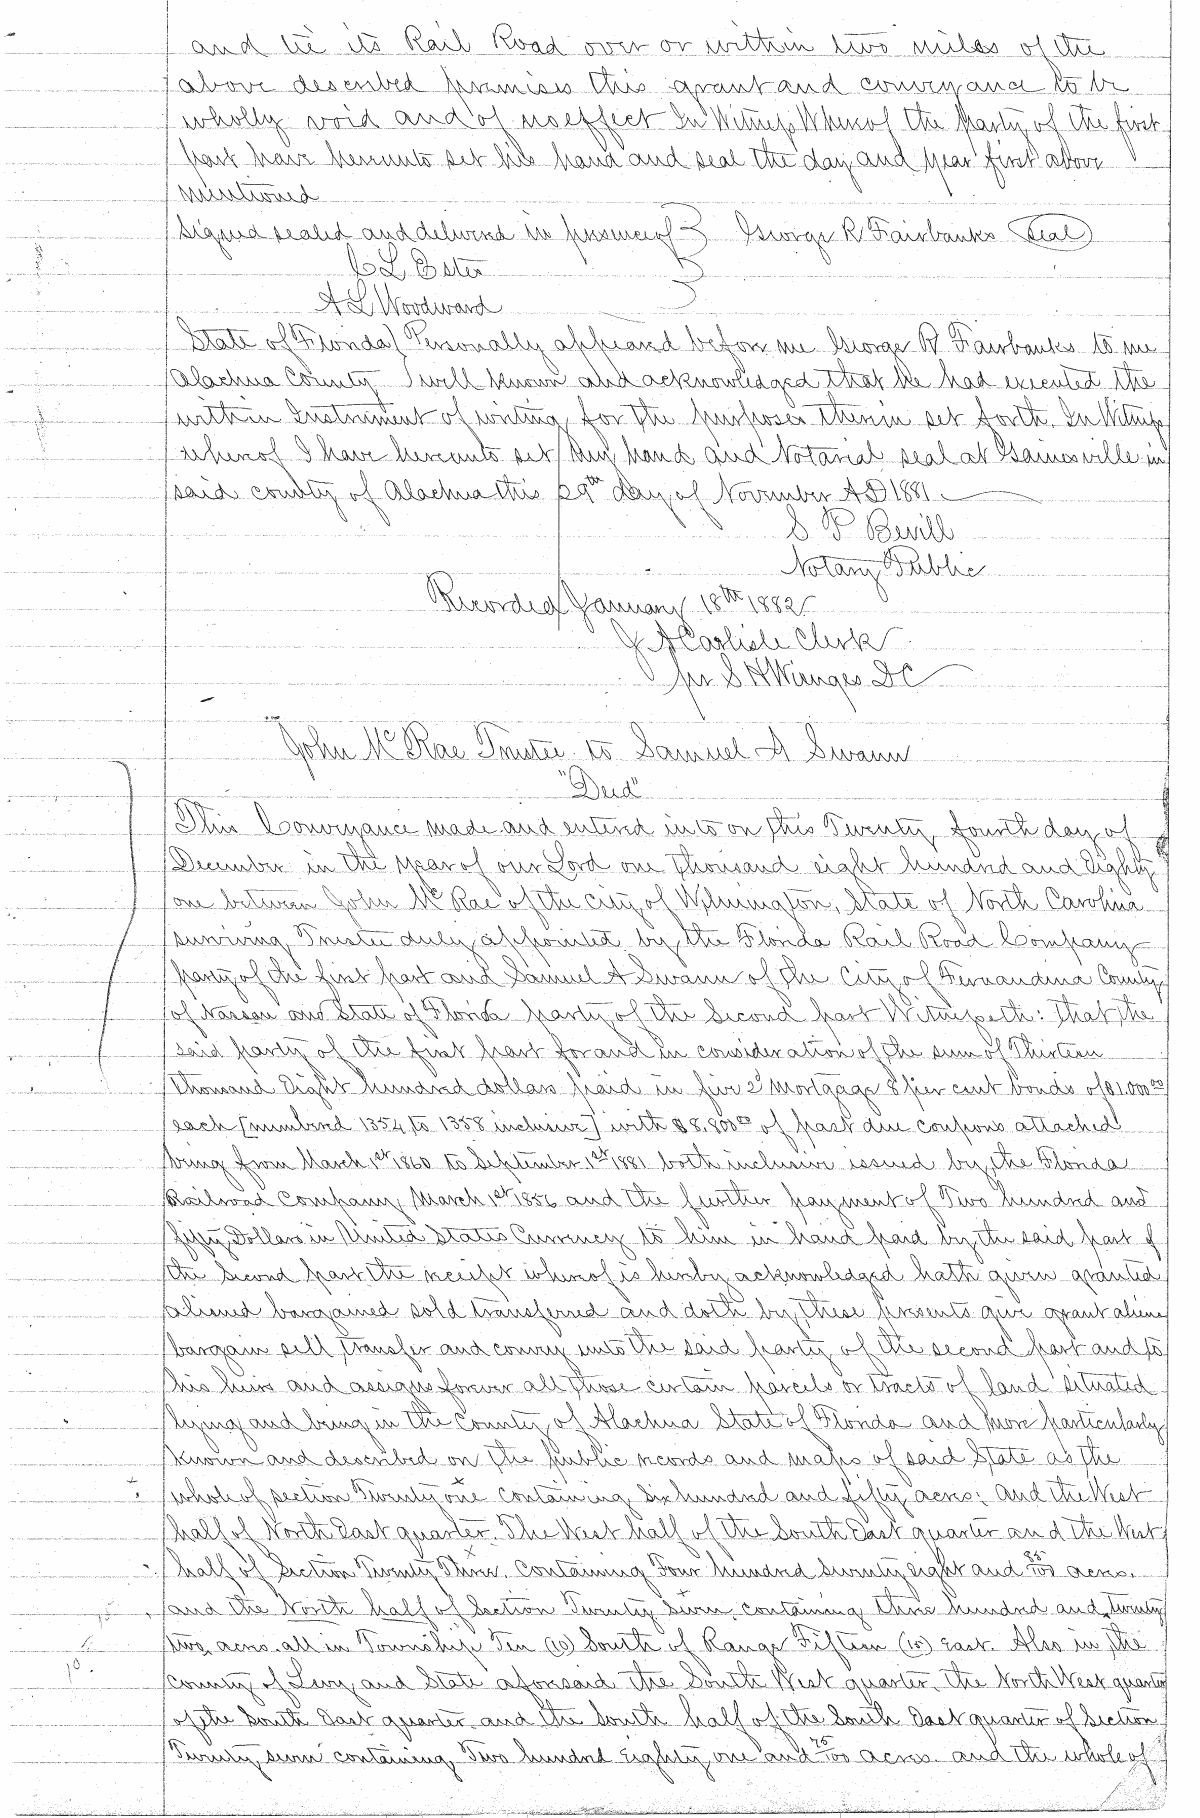 and tie its Rail Road over or within two miles of the
above described premises this grant and conveyance to be
wholly void and of no effect In Witness Whereof the party of the first
part have hereunto set his hand and seal the day and year first above
mentioned
Signed sealed and delivered in presence of } George R Fairbanks Seal
C L Estes
A L Woodward
State of Florida } Personally appeared before me George R Fairbanks to me
Alachua County } well known and acknowledged that he had executed the
within Instrument of writing for the purposes therein set forth. In Witness
whereof I have hereunto set my hand and Notarial seal at Gainesville in
said county of Alachua this 29th day of November AD 1881
S P Bevill
Notary Public
Recorded January 18th 1882
J A Carlisle Clerk
per S H Wienges DC
John McRae Trustee to Samuel A Swann
"Deed"
This Conveyance made and entered into on this Twenty fourth day of
December in the year of our Lord one thousand eight hundred and Eighty
one between John McRae of the city of Wilmington, State of North Carolina
surviving Trustee duly appointed by the Florida Rail Road Company
party of the first part and Samuel A Swann of the City of Fernandina County
of Nassau and State of Florida party of the Second part Witnesseth: That the
said party of the first part for and in consideration of the sum of Thirteen
thousand Eight hundred dollars paid in five 2d Mortgage 8 per cent bonds of $1.000.00
each [numbered 1354 to 1358 inclusive] with $8.800.00 of past due coupons attached
being from March 1st 1860 to September 1st 1881 both inclusive issued by the Florida
Railroad Company, March 1st 1856 and the further payment of Two hundred and
fifty Dollars in United States Currency to him in hand paid by the said part of
the Second part the receipt whereof is hereby acknowledged hath given granted
aliened bargained sold transferred and doth by these presents give grant aliene
bargain sell transfer and convey unto the said party of the second part and to
his heirs and assigns forever all those certain parcels or tracts of land situated
lying and being in the County of Alachua State of Florida and more particularly
known and described on the public records and maps of said State as the
whole of section Twenty one containing six hundred and fifty acres; and the West
half of North East quarter. The West half of the South East quarter and the West
half of Section Twenty Three. Containing Four hundred seventy eight and 85/100 acres.
and the North half of Section Twenty seven, containing three hundred and twenty
two acres. all in Township Ten (10) South of Range Fifteen (15) East. Also in the
County of Levy and State aforesaid the South West quarter, the North West quarter
of the South East quarter and the South half of the South East quarter of Section
Twenty seven containing Two hundred Eighty one and 75/100 acres and the whole of